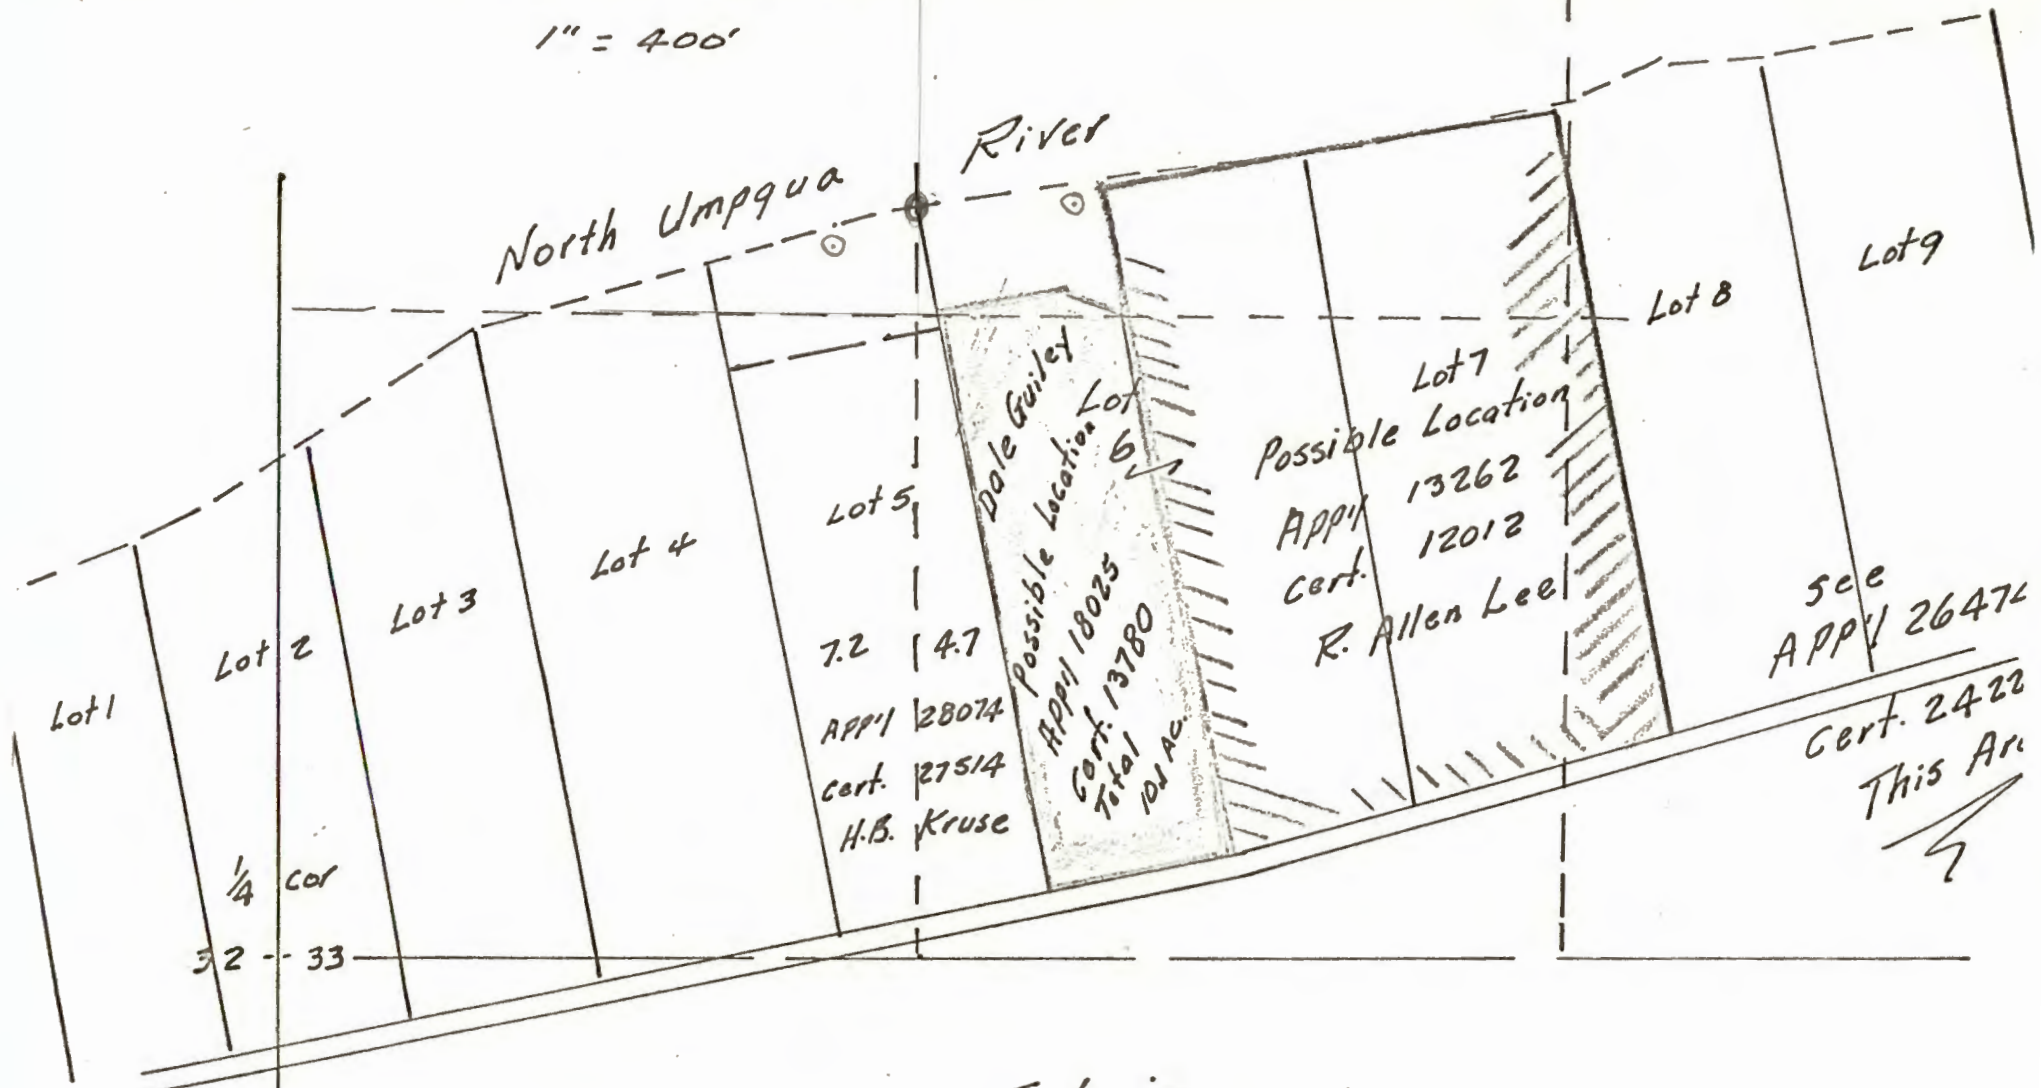 1" = 400'
North Umpqua River
Lot 1
Lot 2
Lot 3
Lot 4
Lot 5
7.2 4.7
App'l 28074
Cert. 27514
H.B. Kruse
Dale Guiley
Possible Location
App'l 18025
Cert. 13780
Total
Lot
6
Lot 7
Possible Location
App'l 13262
Cert. 12012
R. Allen Lee
Lot 8
Lot 9
See
App'l 2647
Cert. 2422
This
1/4 Cor
32 - 33